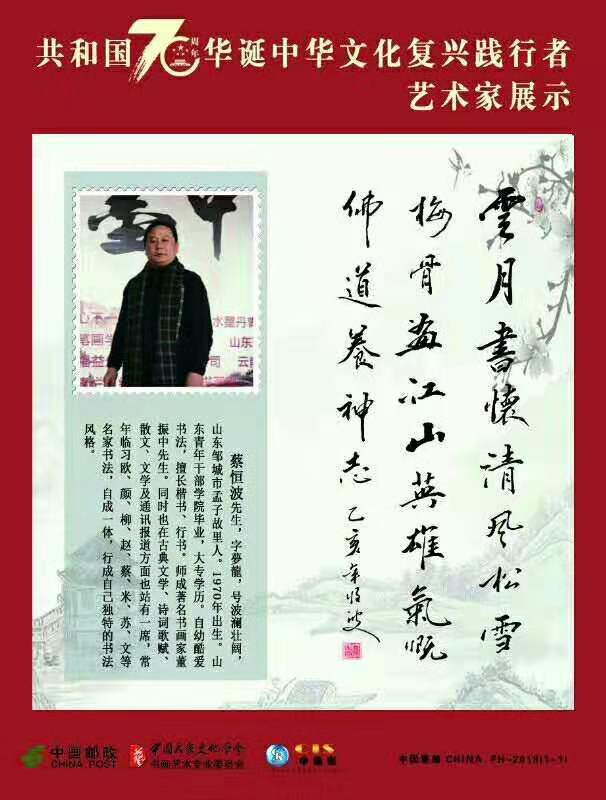 共和国70周年华诞中华文化复兴践行者
艺术家展示
雲月書懷清风松雪
梅骨画江山英雄氣概
佛道养神志 乙亥年恒波
水墨丹青
山东
司
蔡恒波先生，字夢龍，号波澜壮阔，
山东邹城市孟子故里人。1970年出生。山
东青年干部学院毕业，大专学历。自幼酷爱
书法，擅长楷书、行书。师成著名书画家董
振中先生。同时也在古典文学、诗词歌赋、
散文、文学及通讯报道方面也站有一席，常
年临习欧、颜、柳、赵、蔡、米、苏、文等
名家书法，自成一体，行成自己独特的书法
风格。
中国邮政
CHINA POST
中国民族文化学会
书画艺术专业委员会
CIS
中国邮政 CHINA. PH-2019(1-1)